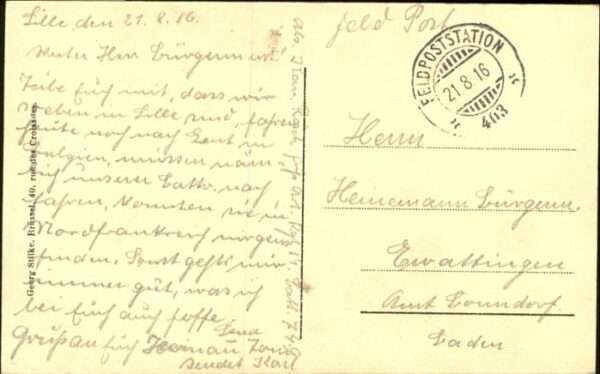 Lille den 21. 8. 16.
Werter Herr Bürgermeist!
Teile Euch mit, dass wir
soeben in Lille sind, fahren
heute noch nach Gent in
Belgien, müssen näm-
lich unserer Battr. nach
fahren, konnten sie in
Nordfrankreich nirgens
finden. Sonst gehts mir
immer gut, was ich
bei Euch auch hoffe.
Gruß an Euch
sendet Karl
Feld Post
FELDPOSTSTATION
21 8 16
* 403 *
Herrn
Heinemann Bürgerm.
Ewattingen
Amt Bonndorf.
Baden
Georg Stilke, Brüssel, 40, rue des Croisades